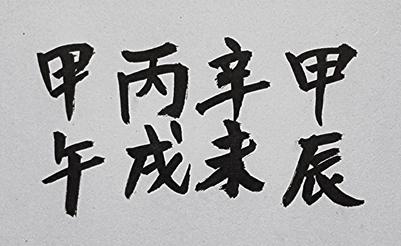 甲辰
辛未
丙戌
甲午